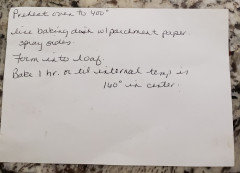 Preheat oven to 400°
line baking dish w/parchment paper
spray sides.
Form into loaf
Bake 1 hr. or til internal temp is
160° in center.